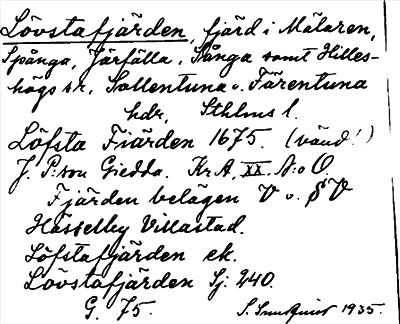 Lövstafjärden, fjärd i Mälaren,
Spånga, Järfälla, Sånga samt Hilles-
högs snr, Sollentuna o. Färentuna
hdr, Sthlms l.
Löfsta Fiärden 1675. (vänd!)
J. P:son Giedda. Kr A, XX. N:o O.
Fjärden belägen V o. SV
Hässelby Villastad.
Löfstafjärden ek.
Lövstafjärden Sj: 240.
G. 75.
S. 1935.